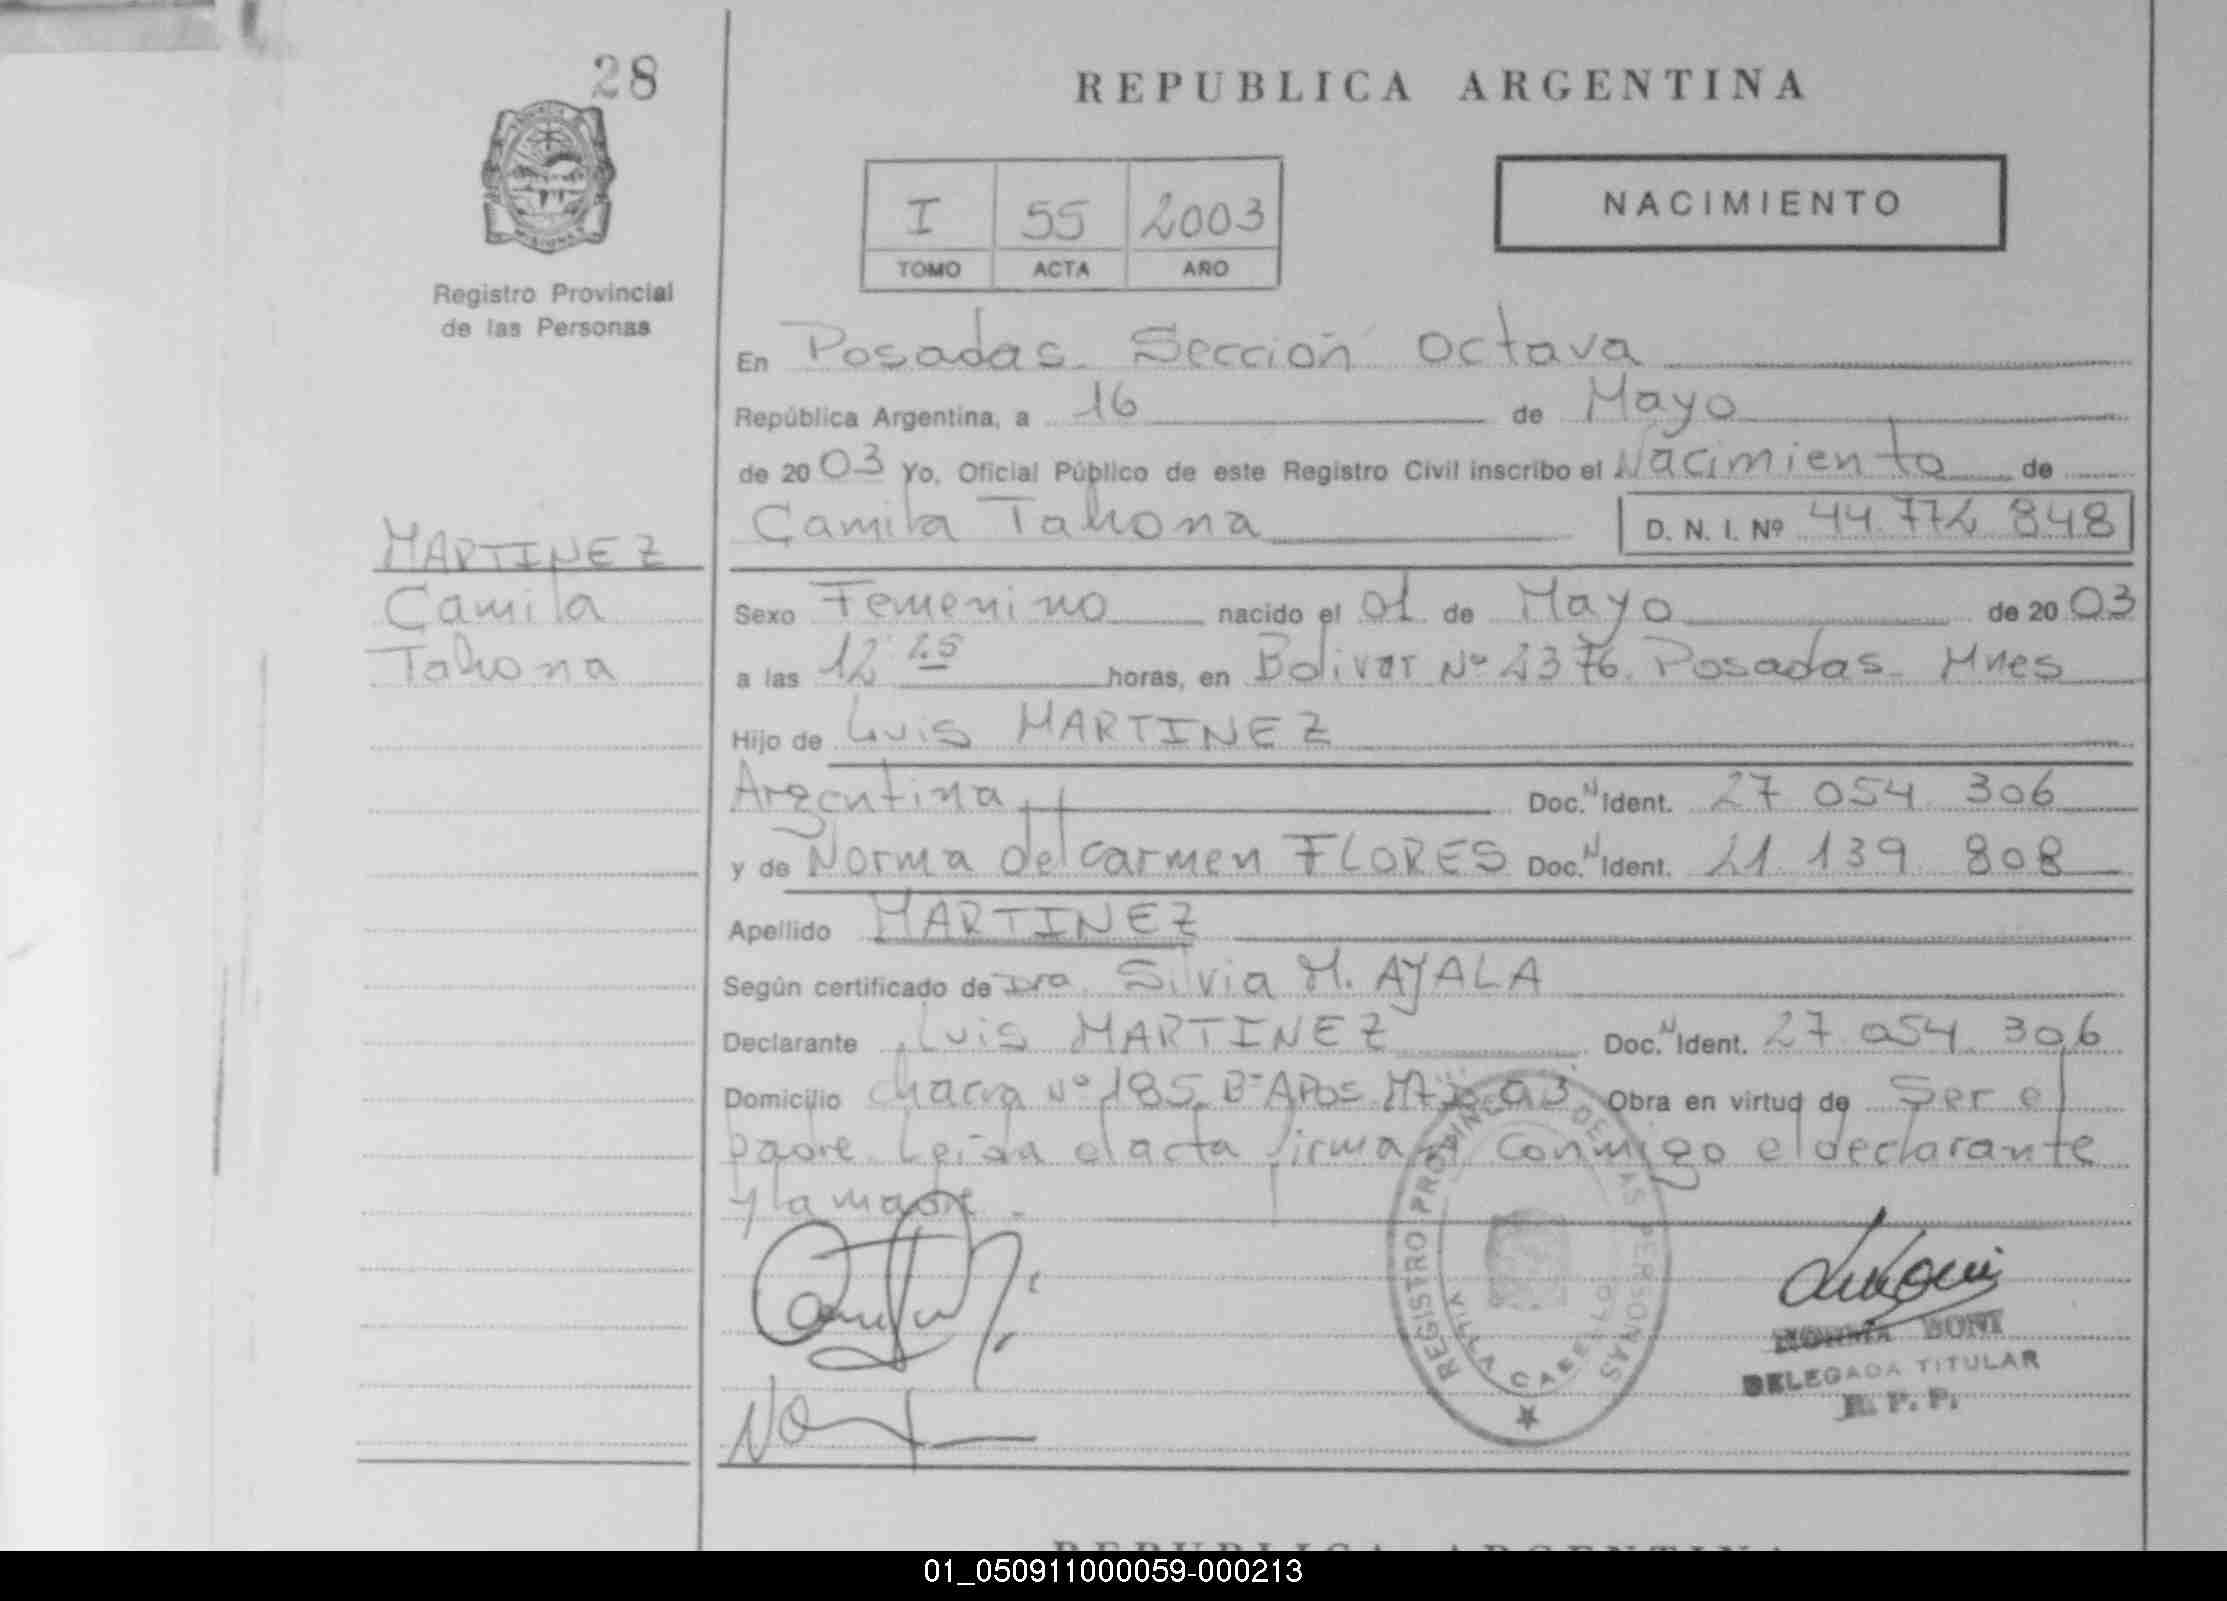 28
REPUBLICA ARGENTINA
MISIONES
Registro Provincial
de las Personas
I 55 2003
TOMO ACTA AÑO
NACIMIENTO
En Posadas Sección Octava
República Argentina, a 16 de Mayo
de 2003 Yo, Oficial Público de este Registro Civil inscribo el Nacimiento de
Camila Tahona D. N. I. Nº 44.774 848
MARTINEZ
Camila
Tahona
Sexo Femenino nacido el 01 de Mayo de 2003
a las 12 25 horas, en Bolivar Nº 2376. Posadas Mnes
Hijo de Luis MARTINEZ
Argentina Doc. N Ident. 27 054 306
y de Norma del Carmen FLORES Doc. N Ident. 21 139 808
Apellido MARTINEZ
Según certificado de Dra. Silvia M. AYALA
Declarante Luis MARTINEZ Doc. N Ident. 27 054 306
Domicilio chacra Nº 185 Obra en virtud de Ser el
padre Leida el acta firma conmigo el declarante
y la madre
REGISTRO PROVINC DE LAS PERSONAS
VILLA CABELLO
NORMA BONI
DELEGADA TITULAR
R. P. P.
REPUBLICA ARGENTINA
01_050911000059-000213